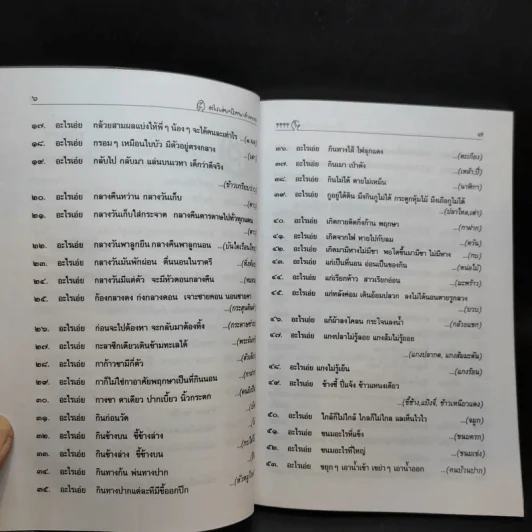 ๖
๑๗. อะไรเอ่ย กล้วยสามผลแบ่งให้พี่ๆ น้องๆ จะได้คนละเท่าไร
๑๘. อะไรเอ่ย กรอมๆ เหมือนใบบัว มีตัวอยู่ตรงกลาง
๑๙. อะไรเอ่ย กลับไป กลับมา แล่นบนเวหา เด็กว่าดีจริง
๒๐. อะไรเอ่ย กลางคืนหว่าน กลางวันเก็บ
๒๑. อะไรเอ่ย กลางวันเก็บใส่กระจาด กลางคืนดารดาษไปทั่วทุกแดน
๒๒. อะไรเอ่ย กลางวันพาลูกยืน กลางคืนพาลูกนอน
๒๓. อะไรเอ่ย กลางวันมันพักผ่อน ตื่นนอนในราตรี
๒๔. อะไรเอ่ย กลางวันมีแต่ตัว จะมีหัวตอนกลางคืน
๒๕. อะไรเอ่ย ก้องกลางดง ก่งกลางดอน เจาะชายคอน นอนชายคา
๒๖. อะไรเอ่ย ก่อนจะไปต้องหา จะกลับมาต้องทิ้ง
๒๗. อะไรเอ่ย กะลาซีกเดียวเดินข้ามทะเลได้
๒๘. อะไรเอ่ย กาก้าวขามีกี่ตัว
๒๙. อะไรเอ่ย กาก็ไม่ใช่กาอาศัยพฤกษาเป็นที่กินนอน
๓๐. อะไรเอ่ย กางขา ตาเดียว ปากเบี้ยว นิ้วกระดก
๓๑. อะไรเอ่ย กินก่อนวัด
๓๒. อะไรเอ่ย กินข้างบน ขี้ข้างล่าง
๓๓. อะไรเอ่ย กินข้างล่าง ขี้ข้างบน
๓๔. อะไรเอ่ย กินทางก้น พ่นทางปาก
๓๕. อะไรเอ่ย กินทางปากแต่ละทีมีขี้ออกปีก
๗
๓๖. อะไรเอ่ย กินทางไส้ ไฟลุกแดง
...(ตะเกียง)
๓๗. อะไรเอ่ย กินเมา เป่าดัง
...(เหล้า,ปี่)
๓๘. อะไรเอ่ย กินไม่ได้ ตายไม่เหม็น
...(นาฬิกา)
๓๙. อะไรเอ่ย กูอยู่ใต้ดิน มึงกินกูไม่ได้ กระดูกหุ้มไม้ มึงเถือกูไม่ได้
๔๐. อะไรเอ่ย เกิดกายติดกิ่งก้าน พฤกษา
...(กาฝาก)
๔๑. อะไรเอ่ย เกิดจากไฟ หายไปกับลม
...(ควัน)
๔๒. อะไรเอ่ย เกิดมามีหางไม่มีขา พอโตขึ้นมามีขา ไม่มีหาง
...(กบ)
๔๓. อะไรเอ่ย แก่เป็นที่นอน อ่อนเป็นของกิน
...(หน่อไม้)
๔๔. อะไรเอ่ย แก่เรียกห้าว สาวเรียกอ่อน
...(มะพร้าว)
๔๕. อะไรเอ่ย แก่หลังค่อม เดินอ้อมปลวก ลงไม่ได้นอนตายรูกลวง
๔๖. อะไรเอ่ย แก้ผ้าลงโคลน กระโจนลงน้ำ
...(กล้วยแขก)
๔๗. อะไรเอ่ย แกงปลาไม่รู้ลอย แกงส้มไม่รู้ลอย
๔๘. อะไรเอ่ย แกงไม่รู้เย็น
...(แกงร้อน)
๔๙. อะไรเอ่ย ช้างขี้ ปี่แจ้ง ข้าวแหนงเดียว
๕๐. อะไรเอ่ย ใกล้ก็ไม่ใกล้ ไกลก็ไม่ไกล แลเห็นไวไว
...(จมูก)
๕๑. อะไรเอ่ย ขนมอะไรที่แข็ง
๕๒. อะไรเอ่ย ขนมอะไรที่ใหญ่
...(ขนมเข่ง)
๕๓. อะไรเอ่ย ขยุกๆ เอาน้ำเข้า เขย่าๆ เอาน้ำออก
...(คนบ้วนปาก)